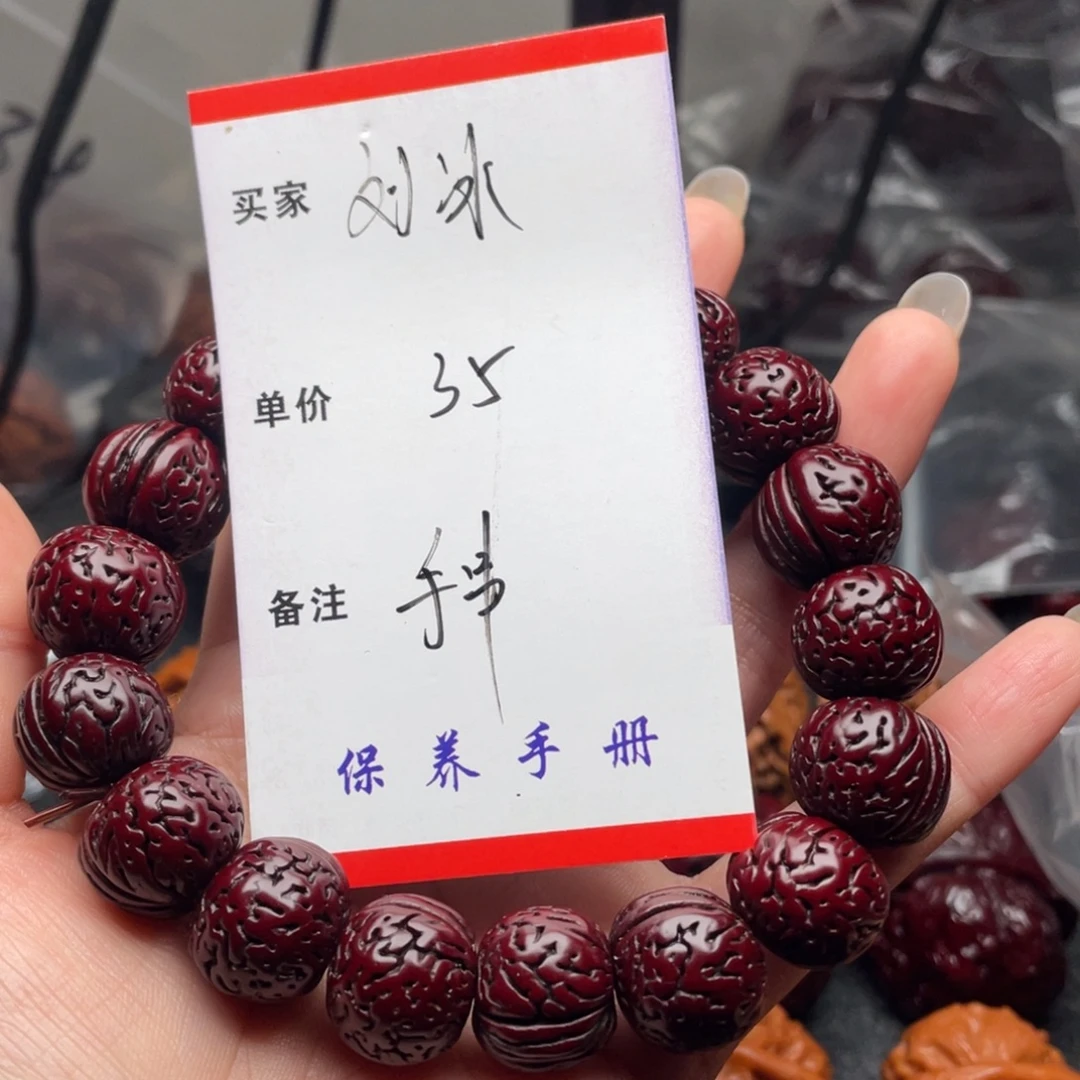 买家 刘冰
单价 35
备注 手串
保养手册